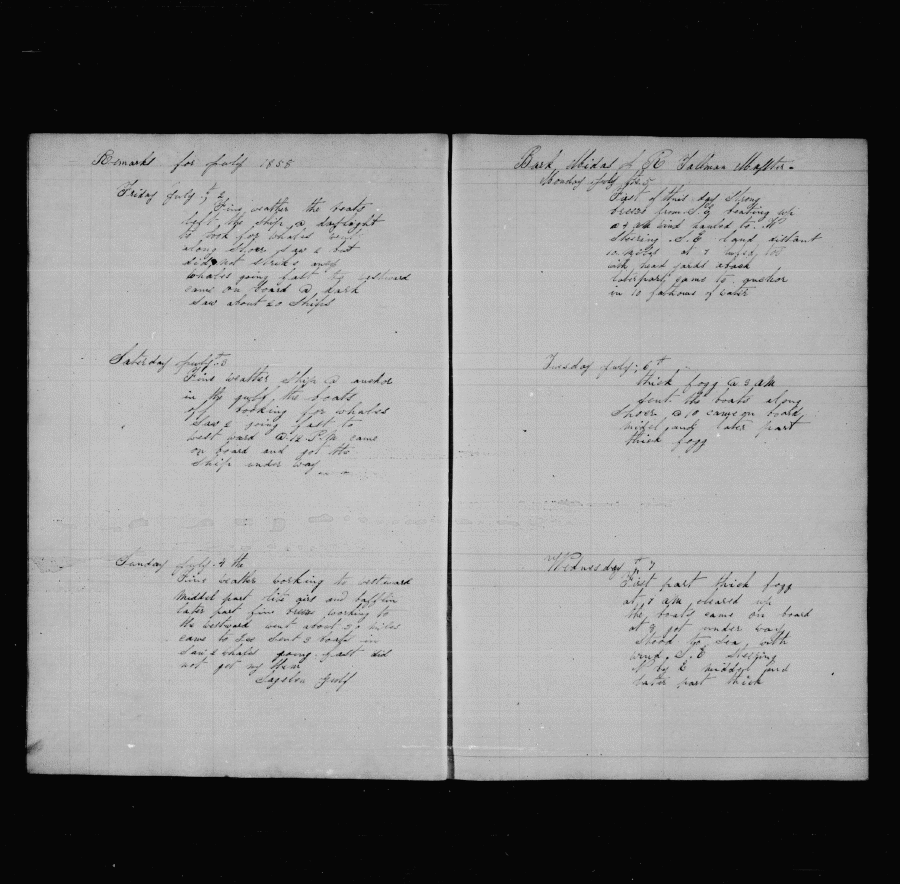 Remarks for July 1858
Friday July th 2
Fine weather the boats
left the ship @ daylight
to look for whales
along shore saw 2 but
did not strike any
whales going fast to westward
came on board @ dark
saw about 20 ships
Saturday July th 3
Fine weather Ship @ anchor
in the gulf the boats
off looking for whales
saw 2 going fast to
westward @ 12 P.M came
on board and got the
Ship under way
Sunday July 4 the
Fine weather working to westward
Middel part lite airs and bafflin
later part fine breze working to
the westward went about 20 miles
came to see sent 3 boats in
saw 2 whales going fast did
not get ny them
Bark Midas of R Tallman Master
Monday July the 5
First of this day Strong
breeze from beating up
wind hauled to N
Steering S.E land distant
at 7
with head yards aback
later part came to anchor
in 10 fathoms of water
Tuesday July 6th
thick fogg @ 3 AM
sent the boats along
Shore @ 10 came on board
middel and later part
thick fogg
Wednesday th 7
First part thick fogg
at 1 AM cleared up
the boats came on board
at 3 got under way
stood to sea with
wind S.E Steering
N by E middel and
later part thick